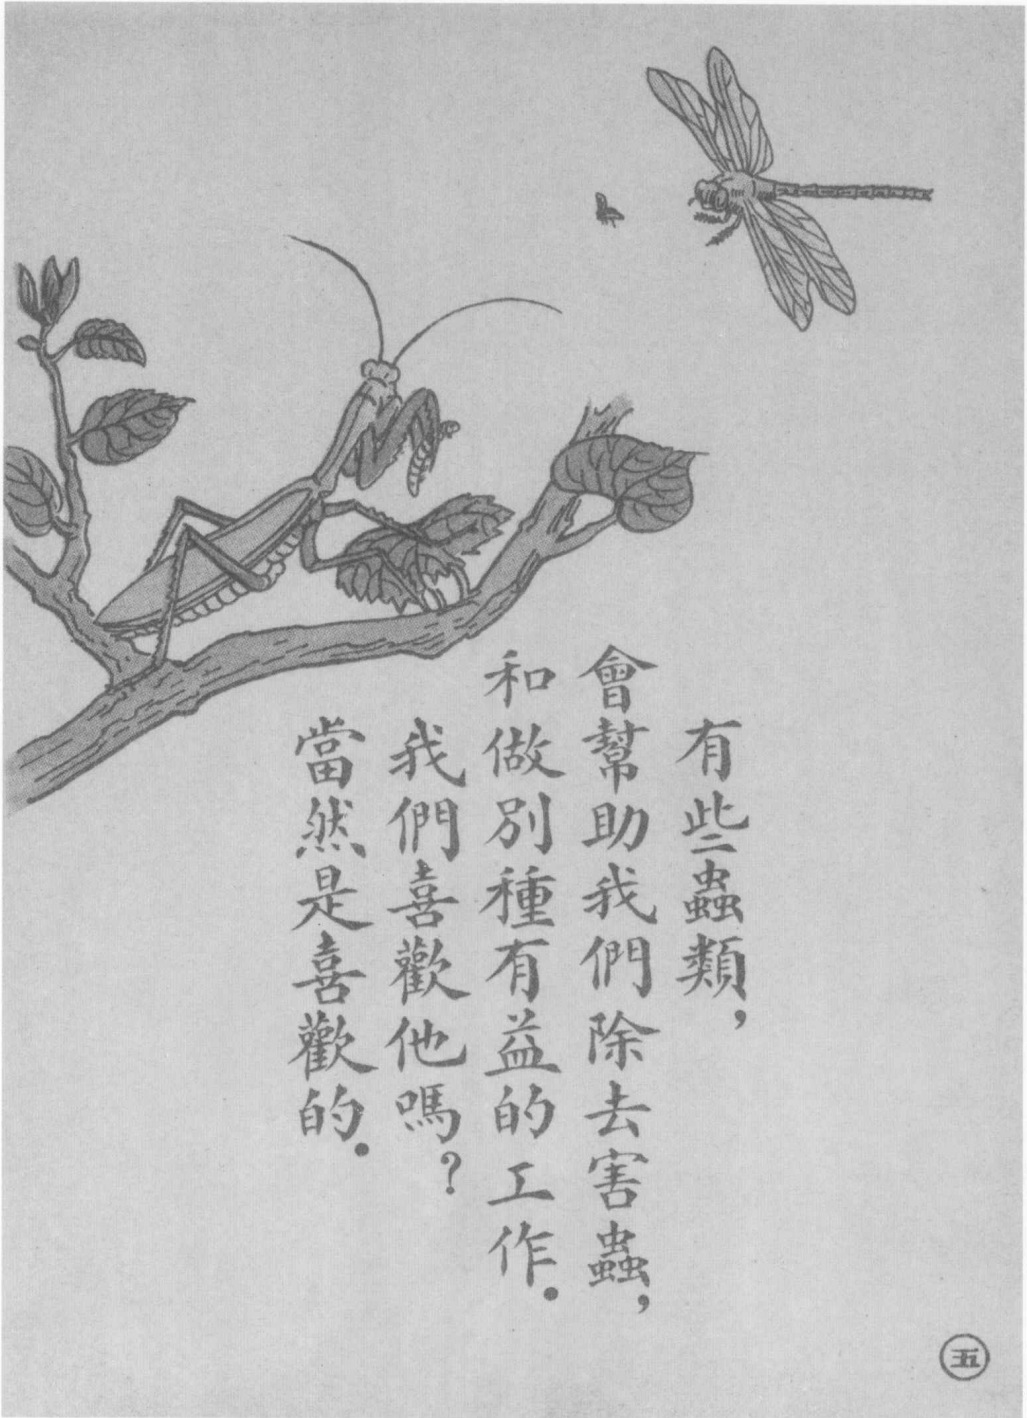 有些蟲類，
會幫助我們除去害蟲，
和做別種有益的工作.
我們喜歡他嗎？
當然是喜歡的.
五